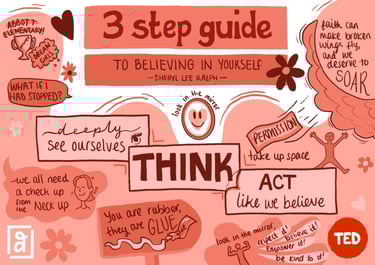 3 step guide
TO BELIEVING IN YOURSELF
— SHERYL LEE RALPH —
ABBOTT
ELEMENTARY!
DREAM
GIRL
WHAT IF I
HAD STOPPED?
faith can
make broken
wings fly,
and we
deserve to
SOAR
look in the mirror
deeply
see ourselves
THINK
PERMISSION
take up space
ACT
like we believe
we all need
a check up
from the
NECK UP
You are rubber,
they are GLUE
look in the mirror,
respect it! believe it!
Empower it!
be kind to it!
TED